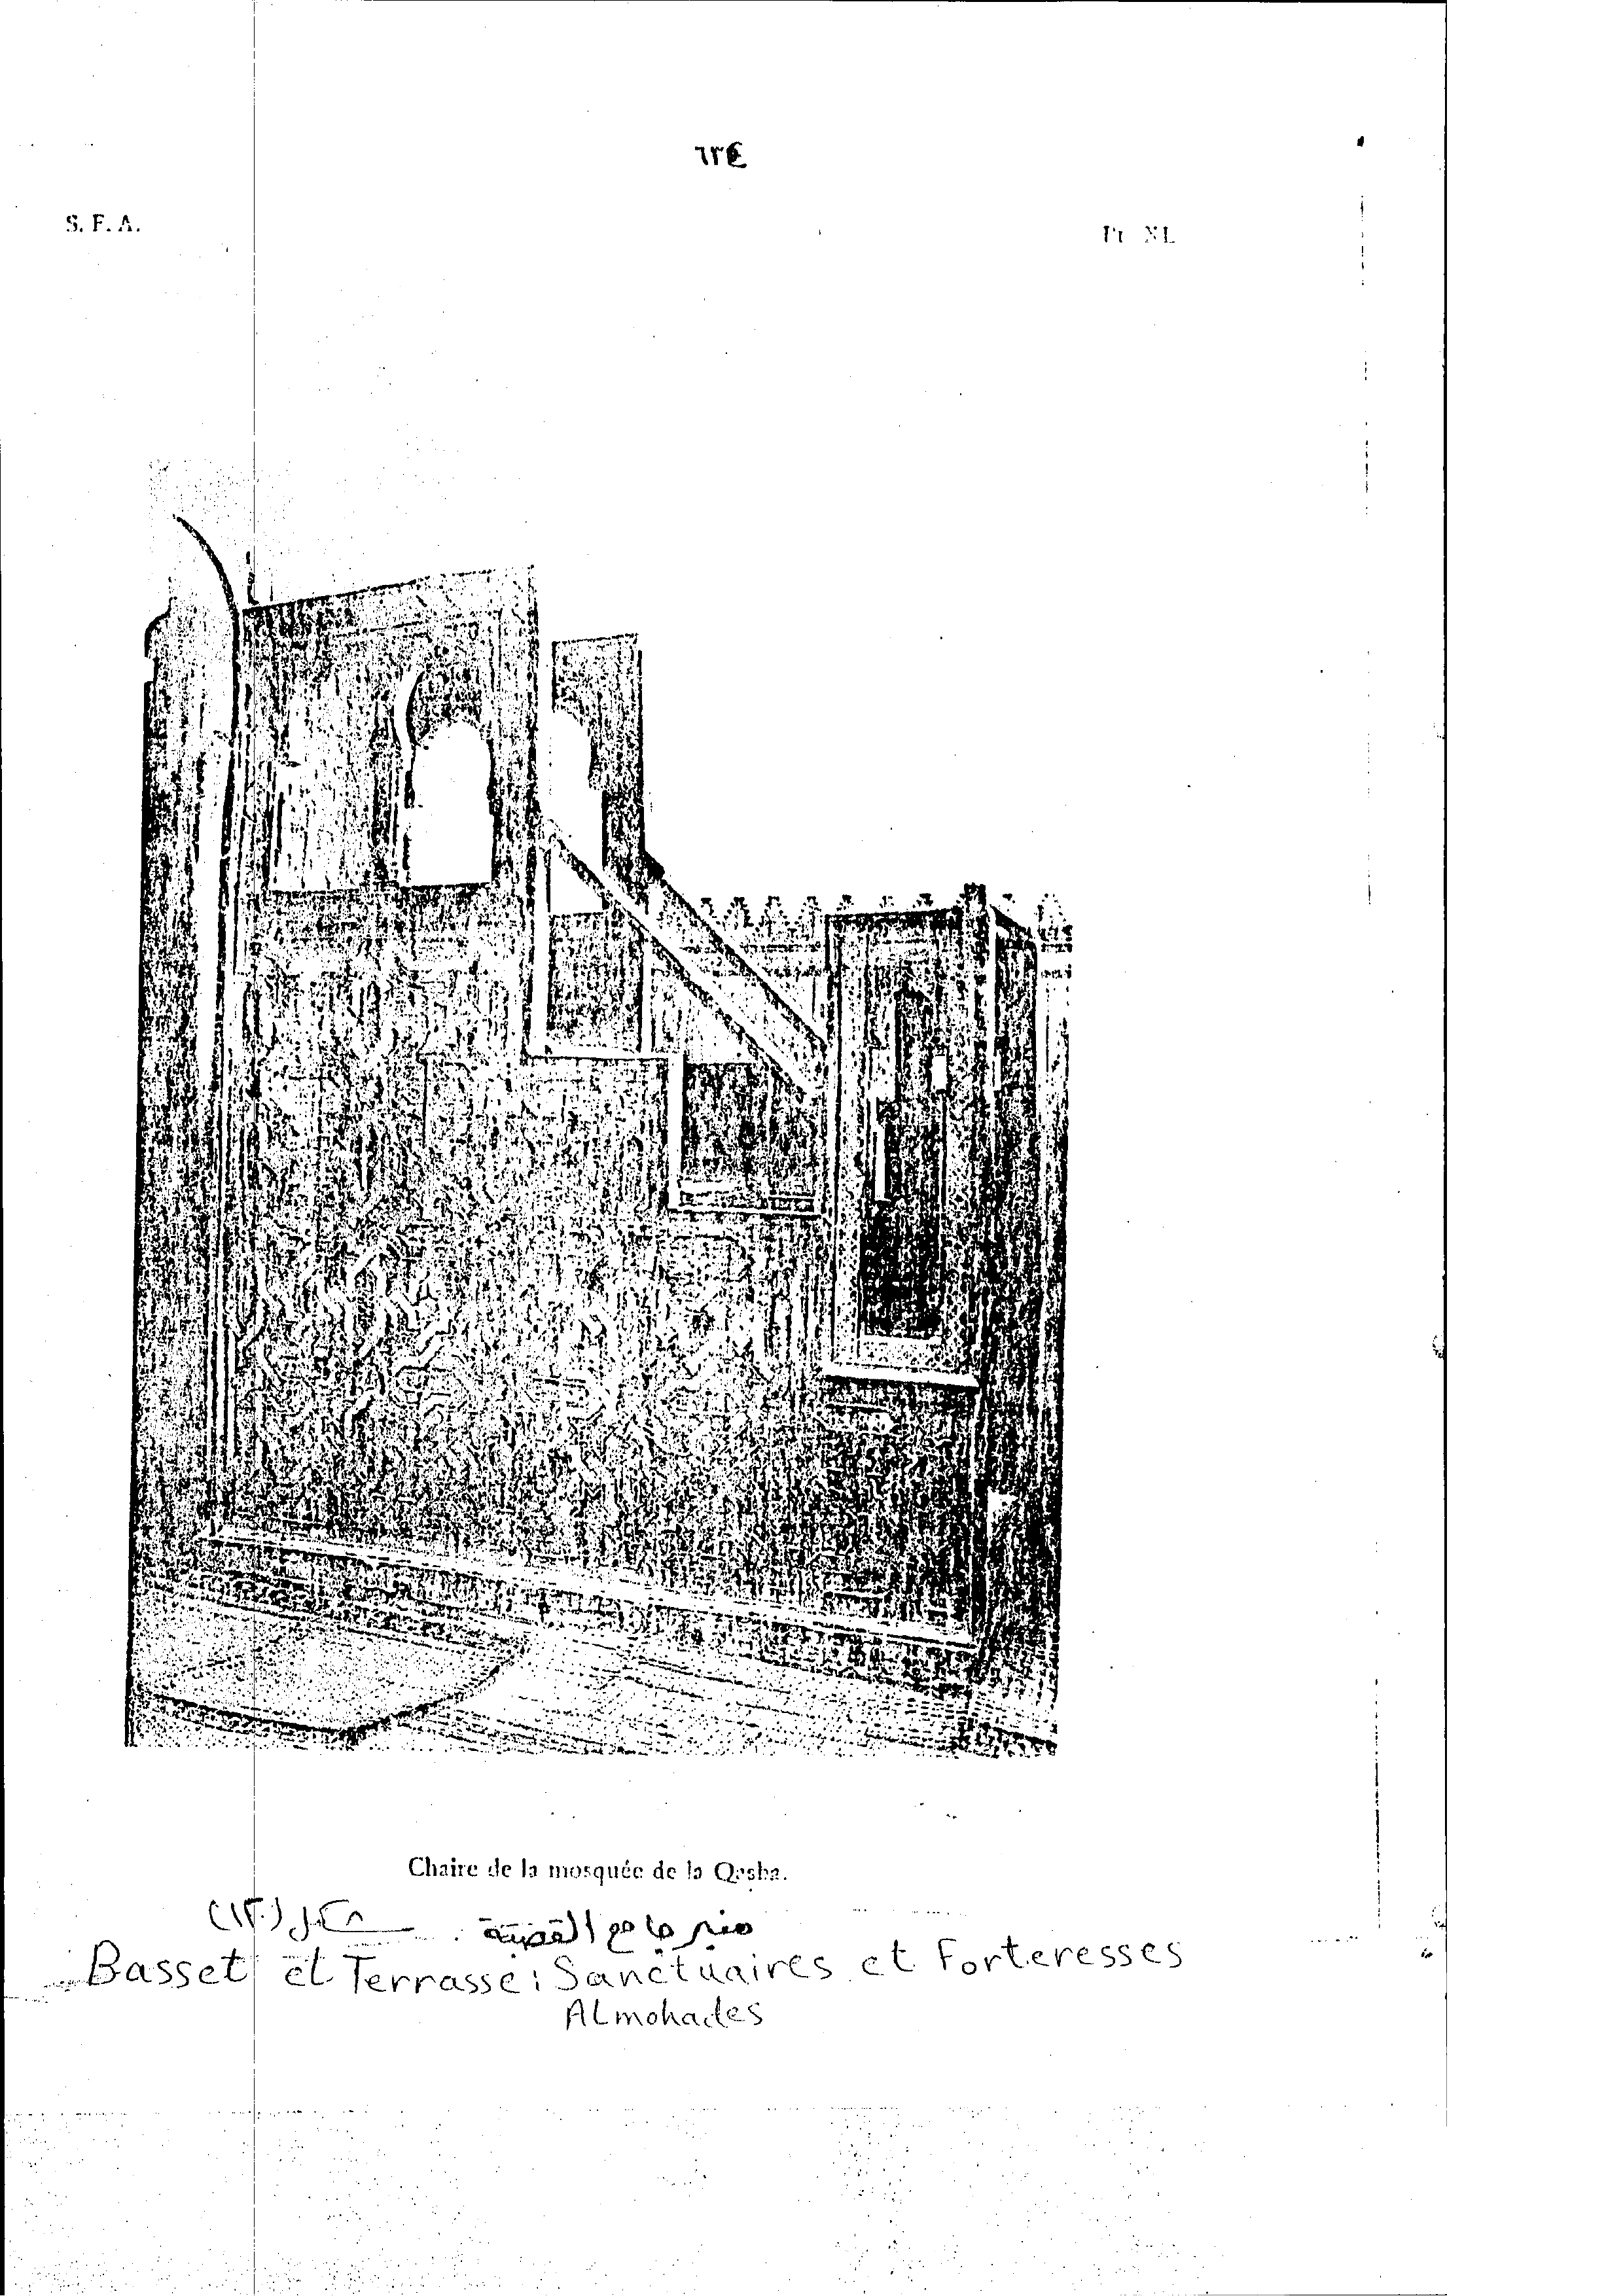 ٦٢٤
S. F. A.
Pl XL
Chaire de la mosquée de la Qasba.
شكل (١٢٠) منبر جامع القصبة .
Basset et Terrasse: Sanctuaires et Forteresses
Almohades